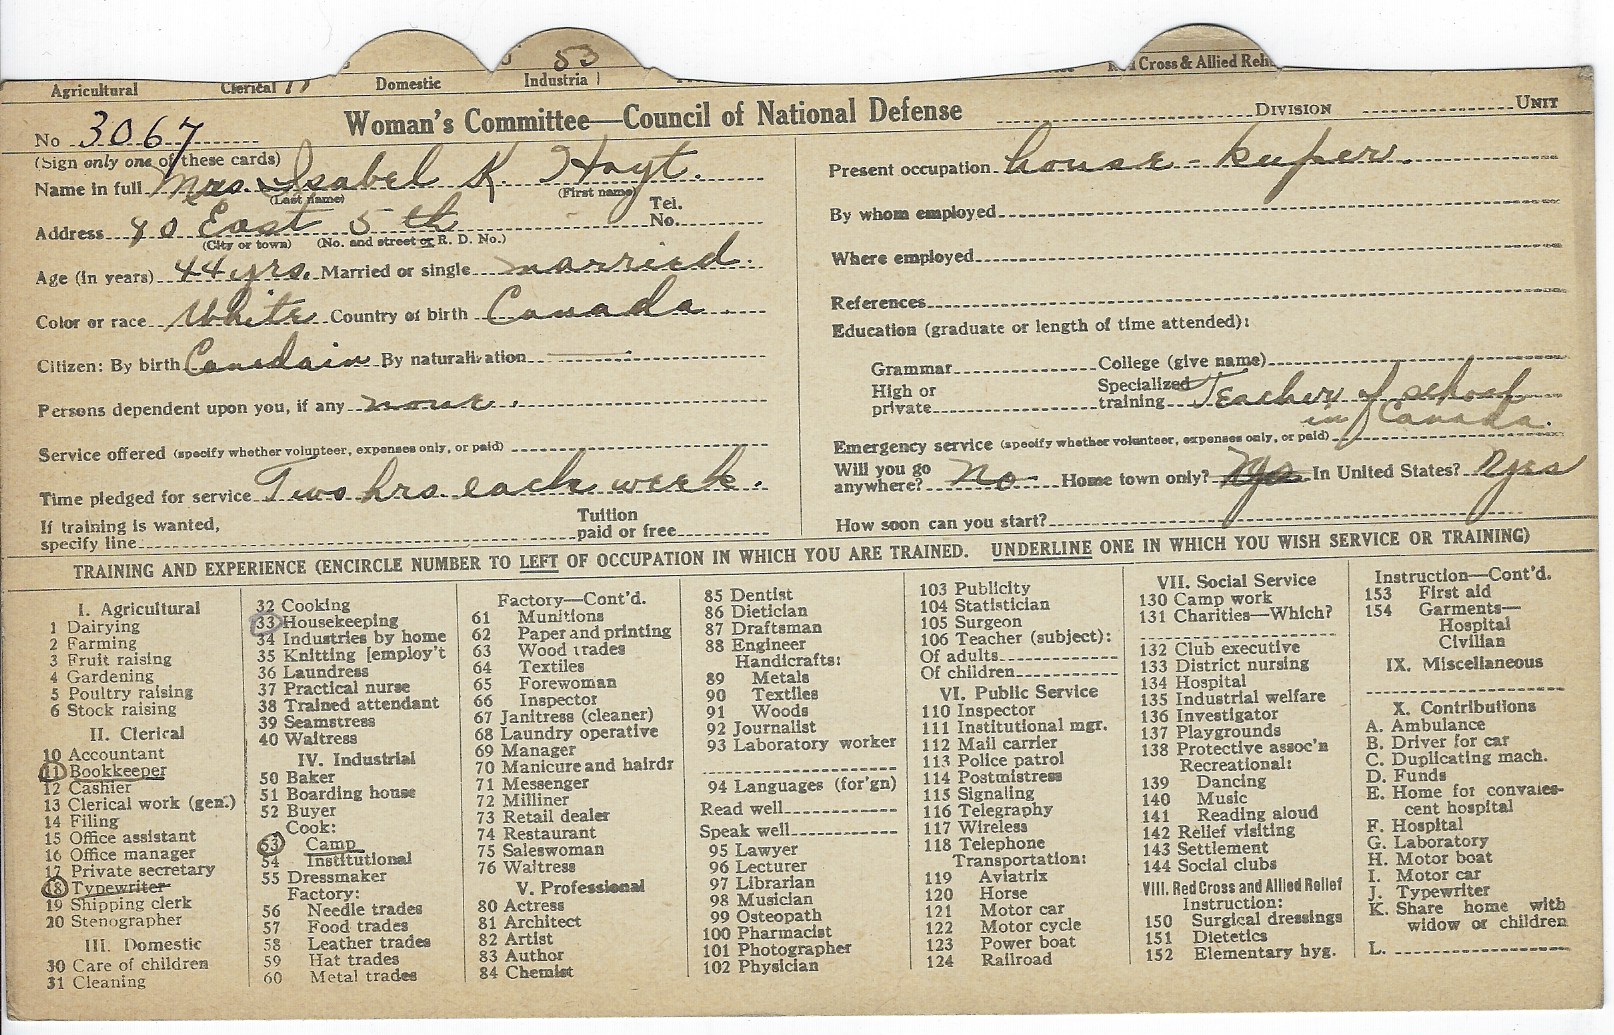 53
Agricultural Clerical 11 Domestic Industrial Red Cross & Allied Reli
Woman's Committee—Council of National Defense DIVISION UNIT
No 3067
(Sign only one of these cards)
Name in full Mrs. Isabel K. Hoyt.
(Last name) (First name)
Address 40 East 5th Tel. No.
(City or town) (No. and street or R. D. No.)
Age (in years) 44 yrs. Married or single married.
Color or race White Country of birth Canada.
Citizen: By birth Canadain By naturalization ——
Persons dependent upon you, if any none.
Service offered (specify whether volunteer, expenses only, or paid)
Time pledged for service Two hrs. each week.
If training is wanted,
specify line Tuition paid or free
Present occupation house-keeper.
By whom employed
Where employed
References
Education (graduate or length of time attended):
Grammar College (give name)
High or private Specialized training Teacher of school
in Canada.
Emergency service (specify whether volunteer, expenses only, or paid)
Will you go anywhere? No Home town only? Yes In United States? Yes
How soon can you start?
TRAINING AND EXPERIENCE (ENCIRCLE NUMBER TO LEFT OF OCCUPATION IN WHICH YOU ARE TRAINED. UNDERLINE ONE IN WHICH YOU WISH SERVICE OR TRAINING)
I. Agricultural
1 Dairying
2 Farming
3 Fruit raising
4 Gardening
5 Poultry raising
6 Stock raising
II. Clerical
10 Accountant
11 Bookkeeper
12 Cashier
13 Clerical work (gen.)
14 Filing
15 Office assistant
16 Office manager
17 Private secretary
18 Typewriter
19 Shipping clerk
20 Stenographer
III. Domestic
30 Care of children
31 Cleaning
32 Cooking
33 Housekeeping
34 Industries by home
35 Knitting [employ't
36 Laundress
37 Practical nurse
38 Trained attendant
39 Seamstress
40 Waitress
IV. Industrial
50 Baker
51 Boarding house
52 Buyer
Cook:
53 Camp
54 Institutional
55 Dressmaker
Factory:
56 Needle trades
57 Food trades
58 Leather trades
59 Hat trades
60 Metal trades
Factory—Cont'd.
61 Munitions
62 Paper and printing
63 Wood trades
64 Textiles
65 Forewoman
66 Inspector
67 Janitress (cleaner)
68 Laundry operative
69 Manager
70 Manicure and hairdr
71 Messenger
72 Milliner
73 Retail dealer
74 Restaurant
75 Saleswoman
76 Waitress
V. Professional
80 Actress
81 Architect
82 Artist
83 Author
84 Chemist
85 Dentist
86 Dietician
87 Draftsman
88 Engineer
Handicrafts:
89 Metals
90 Textiles
91 Woods
92 Journalist
93 Laboratory worker
94 Languages (for'gn)
Read well
Speak well
95 Lawyer
96 Lecturer
97 Librarian
98 Musician
99 Osteopath
100 Pharmacist
101 Photographer
102 Physician
103 Publicity
104 Statistician
105 Surgeon
106 Teacher (subject):
Of adults
Of children
VI. Public Service
110 Inspector
111 Institutional mgr.
112 Mail carrier
113 Police patrol
114 Postmistress
115 Signaling
116 Telegraphy
117 Wireless
118 Telephone
Transportation:
119 Aviatrix
120 Horse
121 Motor car
122 Motor cycle
123 Power boat
124 Railroad
VII. Social Service
130 Camp work
131 Charities—Which?
132 Club executive
133 District nursing
134 Hospital
135 Industrial welfare
136 Investigator
137 Playgrounds
138 Protective assoc'n
Recreational:
139 Dancing
140 Music
141 Reading aloud
142 Relief visiting
143 Settlement
144 Social clubs
VIII. Red Cross and Allied Relief
Instruction:
150 Surgical dressings
151 Dietetics
152 Elementary hyg.
Instruction—Cont'd.
153 First aid
154 Garments—
Hospital
Civilian
IX. Miscellaneous
X. Contributions
A. Ambulance
B. Driver for car
C. Duplicating mach.
D. Funds
E. Home for convales-
cent hospital
F. Hospital
G. Laboratory
H. Motor boat
I. Motor car
J. Typewriter
K. Share home with
widow or children
L.